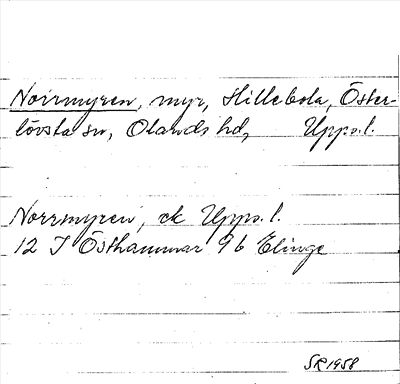 Norrmyren, myr, Hillebola, Öster-
lövsta sn, Olands hd, Upps. l.
Norrmyren, ek Upps. l.
12 I Östhammar 9b Elinge
SR 1958